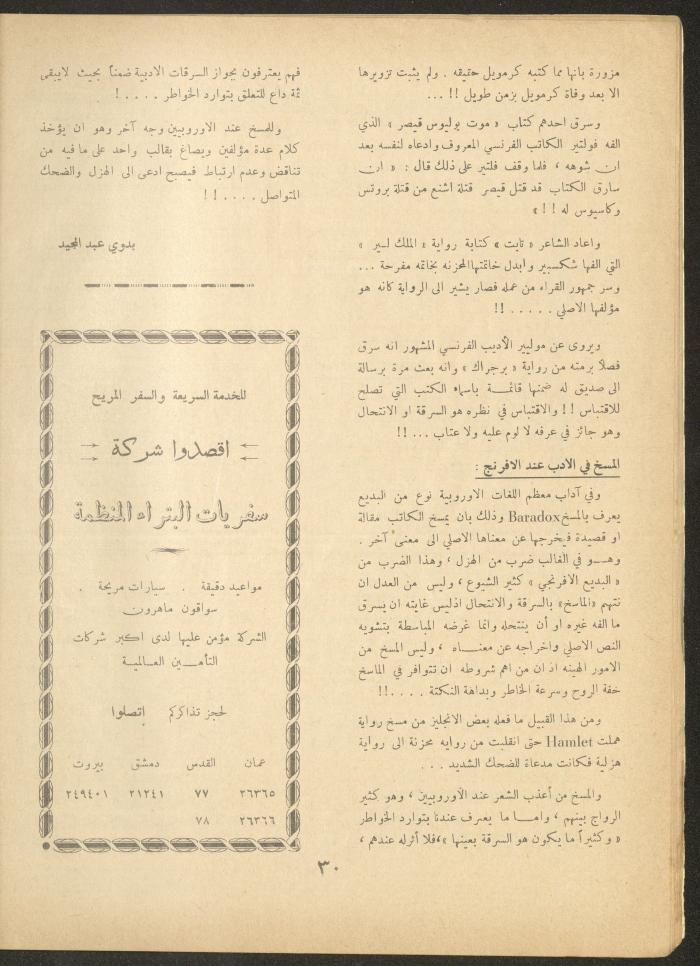 مزورة بانها مما كتبه كرمويل حقيقه . ولم يثبت تزويرها
الا بعد وفاة كرمويل بزمن طويل !! ...
وسرق احدهم كتاب « موت يوليوس قيصر » الذي
الفه فولتير الكاتب الفرنسي المعروف وادعاه لنفسه بعد
ان شوهه ، فلما وقف فلتير على ذلك قال : « ان
سارق الكتاب قد قتل قيصر قتلة اشنع من قتلة بروتس
وكاسيوس له !! »
واعاد الشاعر « تايت » كتابة رواية « الملك لير »
التي الفها شكسبير وابدل خاتمتها المحزنه بخاتمه مفرحة ...
وسر جمهور القراء من عمله فصار يشير الى الرواية كانه هو
مؤلفها الاصلي ..... !!
ويروى عن موليير الأديب الفرنسي المشهور انه سرق
فصلاً برمته من رواية « برجراك » وانه بعث مرة برسالة
الى صديق له ضمنها قائمـة باسماء الكتب التي تصلح
للاقتباس !! والاقتباس في نظره هو السرقة او الانتحال
وهو جائز في عرفه لا لوم عليه ولا عتاب ... !!
المسخ في الادب عند الافرنج :
وفي آداب معظم اللغات الاوروبية نوع من البديع
يعرف بالمسخ Baradox وذلك بان يمسخ الكاتب مقالة
او قصيدة فيخرجها عن معناها الاصلي الى معنى آخر .
وهـو في الغالب ضرب من الهزل ، وهذا الضرب من
« البديع الافرنجي » كثير الشيوع ، وليس من العدل ان
نتهم «الماسخ» بالسرقة والانتحال اذليس غايته ان يسرق
ما الفه غيره او أن ينتحله وانما غرضه المباسطة بتشويه
النص الاصلي واخراجه عن معنـاه ، وليس المسخ من
الامور الهينه اذ ان من اهم شروطه ان تتوافر في الماسخ
خفة الروح وسرعة الخاطر وبداهة النكتة ....!!
ومن هذا القبيل ما فعله بعض الانجليز من مسخ رواية
هملت Hamlet حتى انقلبت من روايه محزنة الى رواية
هزلية فكانت مدعاة للضحك الشديد ...
والمسخ من أعذب الشعر عند الأوروبيين ، وهو كثير
الرواج بينهم ، وامـا ما يعرف عندنا بتوارد الخواطر
« وكثيراً ما يكون هو السرقة بعينها » ، فلا أثرله عندهم ،
فهم يعترفون بجواز السرقات الادبية ضمناً بحيث لايبقى
ثمة داع للتعلق بتوارد الخواطر ....!
وللمسخ عند الاوروبيين وجه آخر وهو ان يؤخذ
كلام عدة مؤلفين ويصاغ بقالب واحد على ما فيه من
تناقض وعدم ارتباط فيصبح ادعى الى الهزل والضحك
المتواصل .... !!
بدوي عبد المجيد
للخدمة السريعة والسفر المريح
اقصدوا شركة
سفريات البتراء المنظمة
مواعيد دقيقة . سيارات مريحة .
سواقون ماهرون
الشركة مؤمن عليها لدى اكبر شركات
التأمـين العـالمية
لحجز تذاكركم إتصلوا
عمان القدس دمشق بيروت
٢٦٣٦٥ ٧٧ ٢١٢٤١ ٢٤٩٤٠١
٢٦٣٦٦ ٧٨
٣٠